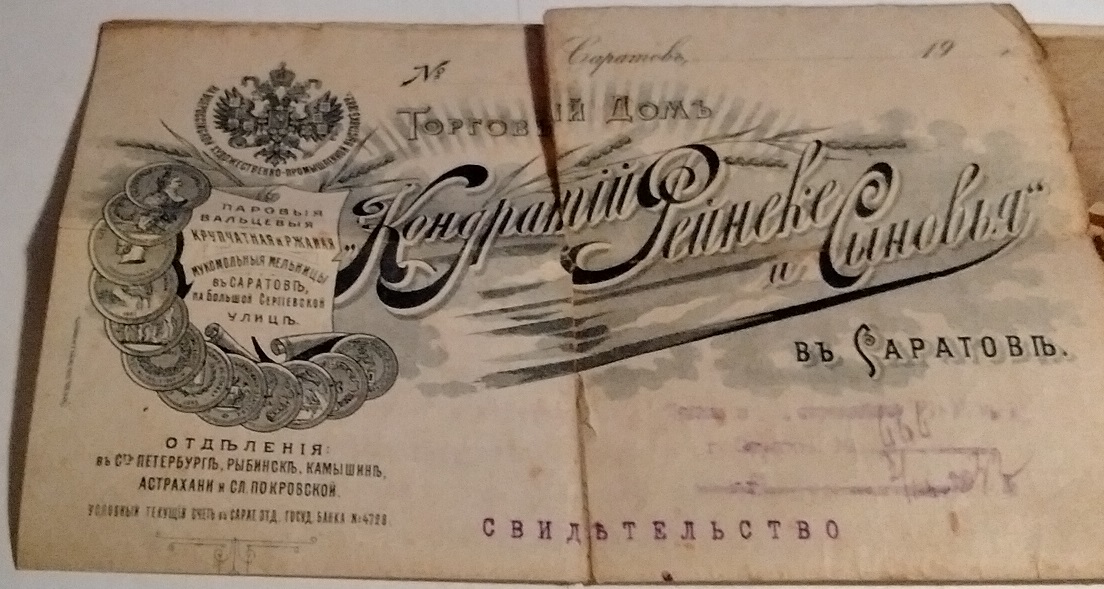 №
Саратовъ, 19
НА ВСЕРОССІЙСКОЙ ХУДОЖЕСТВЕННО-ПРОМЫШЛЕННОЙ
ТОРГОВЫЙ ДОМЪ
„Кондратій Рейнеке
и Сыновья“
ВЪ САРАТОВѢ.
ПАРОВЫЯ
ВАЛЬЦЕВЫЯ
КРУПЧАТНАЯ и РЖАНАЯ
МУКОМОЛЬНЫЯ МЕЛЬНИЦЫ
ВЪ САРАТОВѢ,
НА БОЛЬШОЙ СЕРГІЕВСКОЙ
УЛИЦѢ.
ОТДѢЛЕНІЯ:
ВЪ СТЪ ПЕТЕРБУРГѢ, РЫБИНСКѢ, КАМЫШИНѢ,
АСТРАХАНИ и СЛ. ПОКРОВСКОЙ.
УСЛОВНЫЙ ТЕКУЩІЙ СЧЕТЪ въ САРАТ. ОТД. ГОСУД. БАНКА № 4728
СВИДѢТЕЛЬСТВО